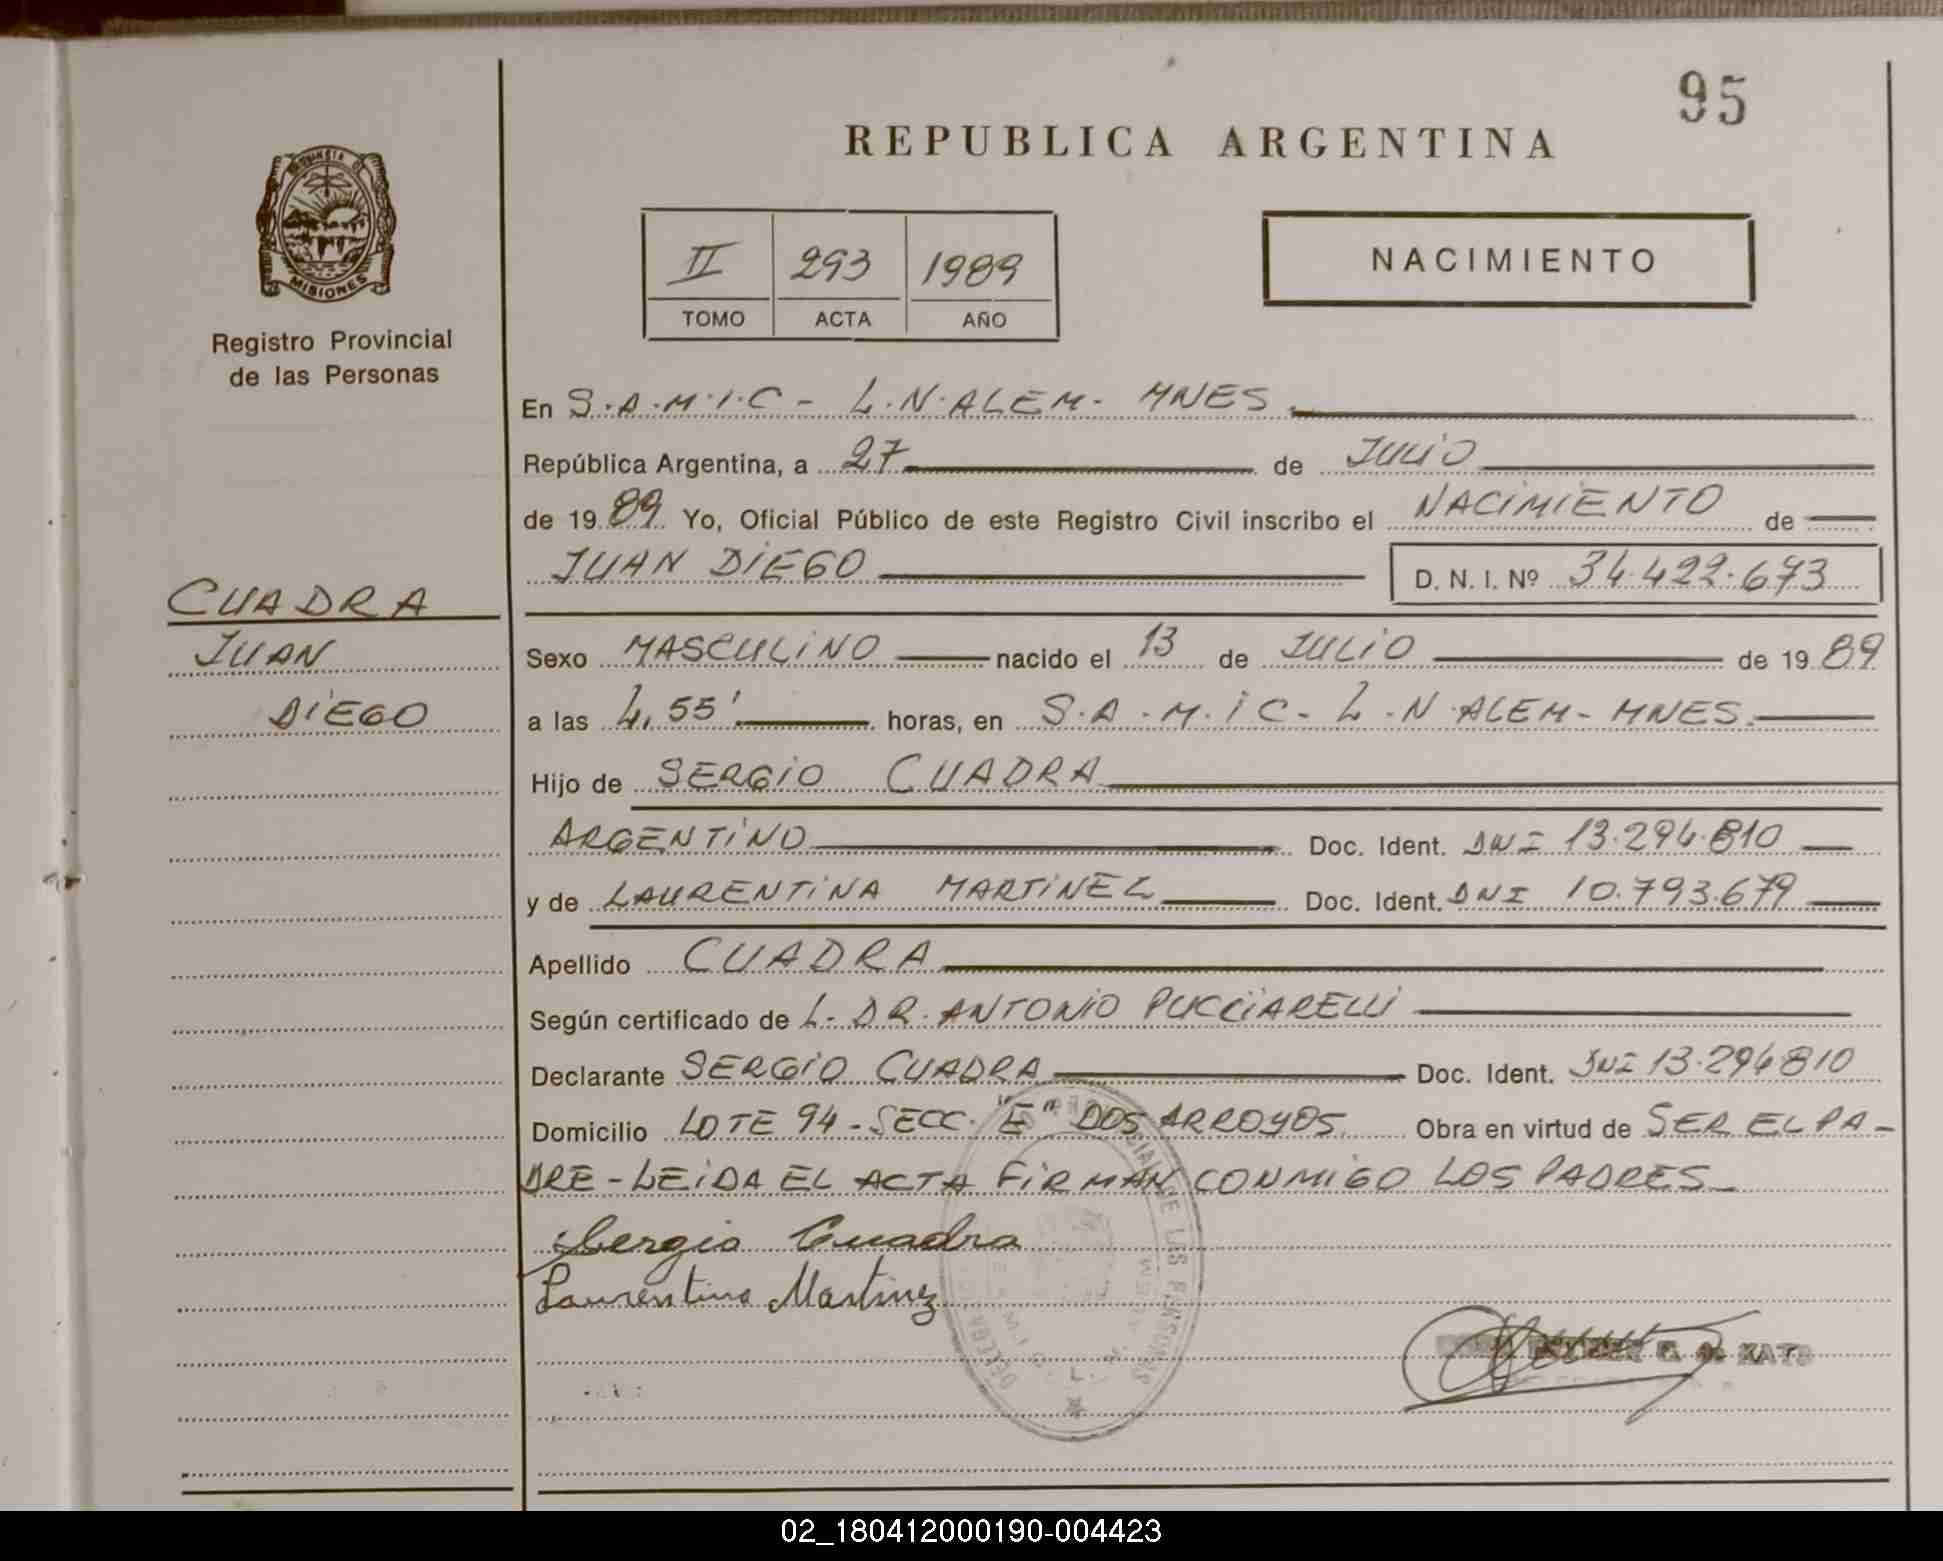 95
REPUBLICA ARGENTINA
MISIONES
Registro Provincial
de las Personas
II 293 1989
TOMO ACTA AÑO
NACIMIENTO
En S.A.M.I.C - L.N.ALEM - MNES.
República Argentina, a 27 de JULIO
de 1989 Yo, Oficial Público de este Registro Civil inscribo el NACIMIENTO de
JUAN DIEGO D. N. I. Nº 34.422.673
CUADRA
JUAN
DIEGO
Sexo MASCULINO nacido el 13 de JULIO de 1989
a las 4,55' horas, en S.A.M.I C - L.N.ALEM - MNES.
Hijo de SERGIO CUADRA
ARGENTINO Doc. Ident. DNI 13.294.810
y de LAURENTINA MARTINEZ Doc. Ident. DNI 10.793.679
Apellido CUADRA
Según certificado de L. DR. ANTONIO PUCCIARELLI
Declarante SERGIO CUADRA Doc. Ident. DNI 13.294810
Domicilio LOTE 94 - SECC. "E" DOS ARROYOS Obra en virtud de SER EL PA-
DRE - LEIDA EL ACTA FIRMAN CONMIGO LOS PADRES -
Sergio Cuadra
Laurentina Martinez
DE LAS PERSONAS
KATO
02_180412000190-004423